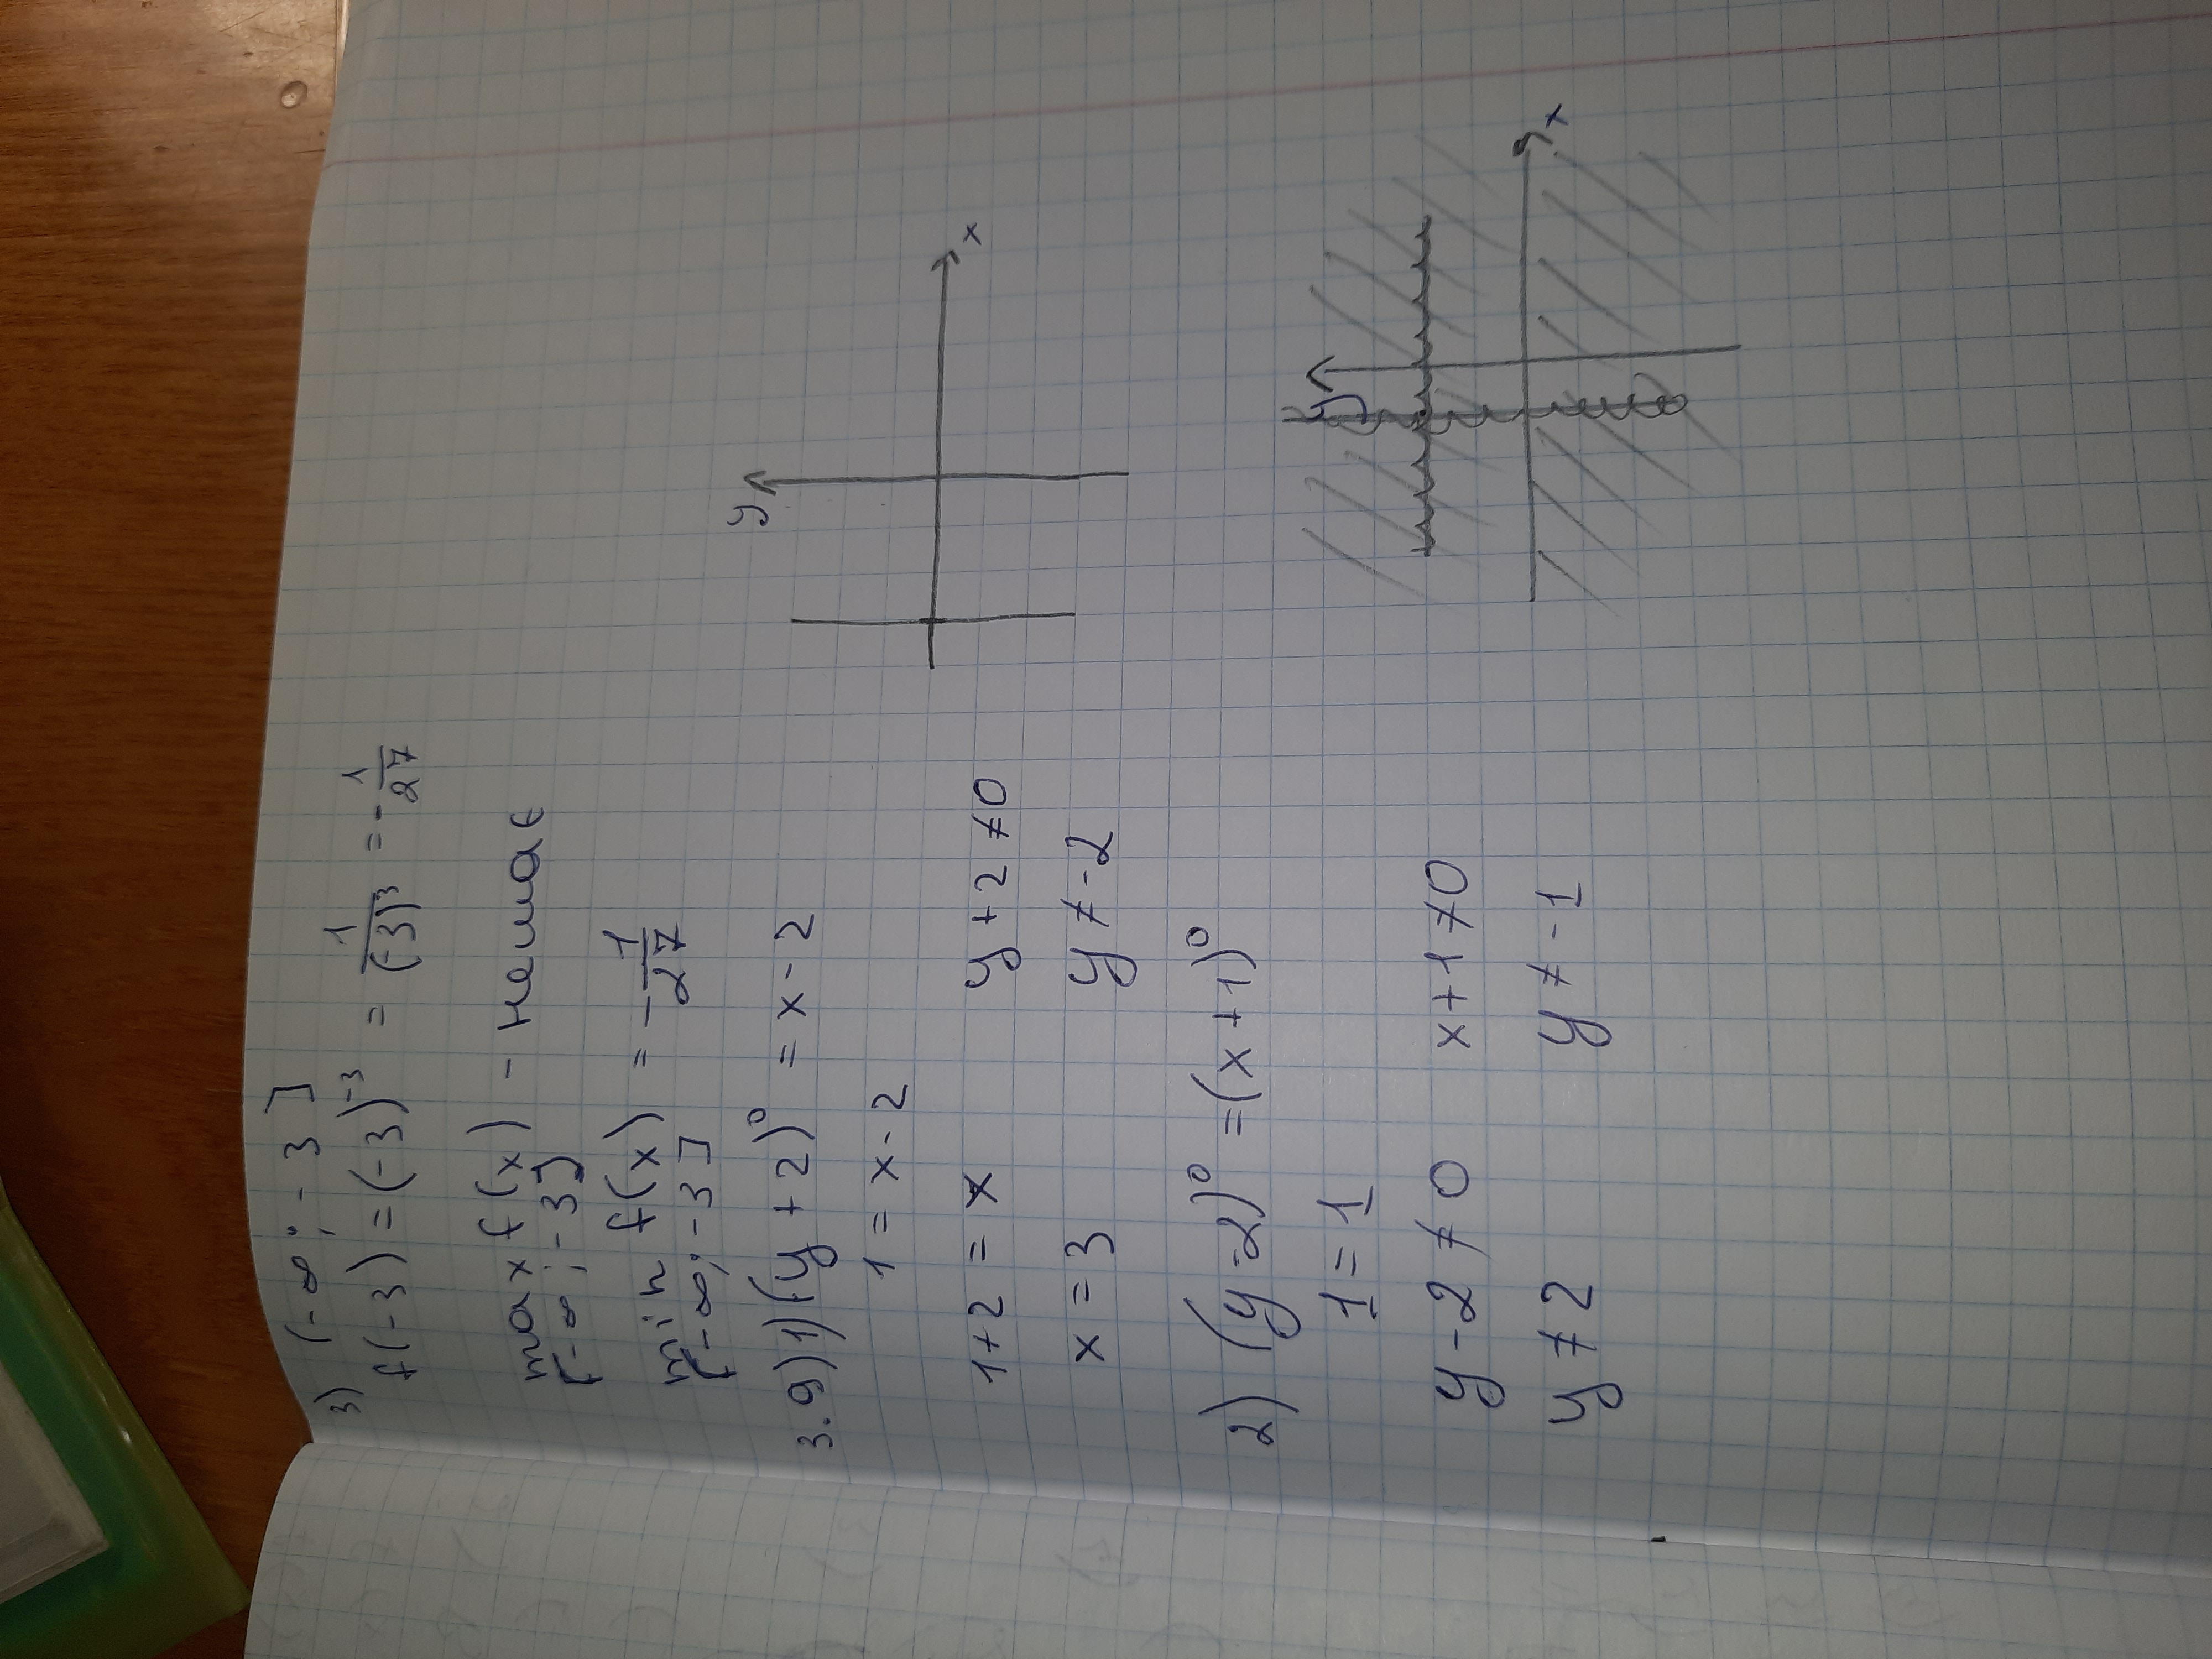 3) (-∞; -3]
f(-3) = (-3)⁻³ = 1/(-3)³ = -1/27
max f(x) - немає
[-∞; -3]
min f(x) = -1/27
[-∞; -3]
3.9) 1) (y + 2)⁰ = x - 2
1 = x - 2
1 + 2 = x y + 2 ≠ 0
x = 3 y ≠ -2
y
x
2) (y - 2)⁰ = (x + 1)⁰
1 = 1
y - 2 ≠ 0 x + 1 ≠ 0
y ≠ 2 y ≠ -1
y
x